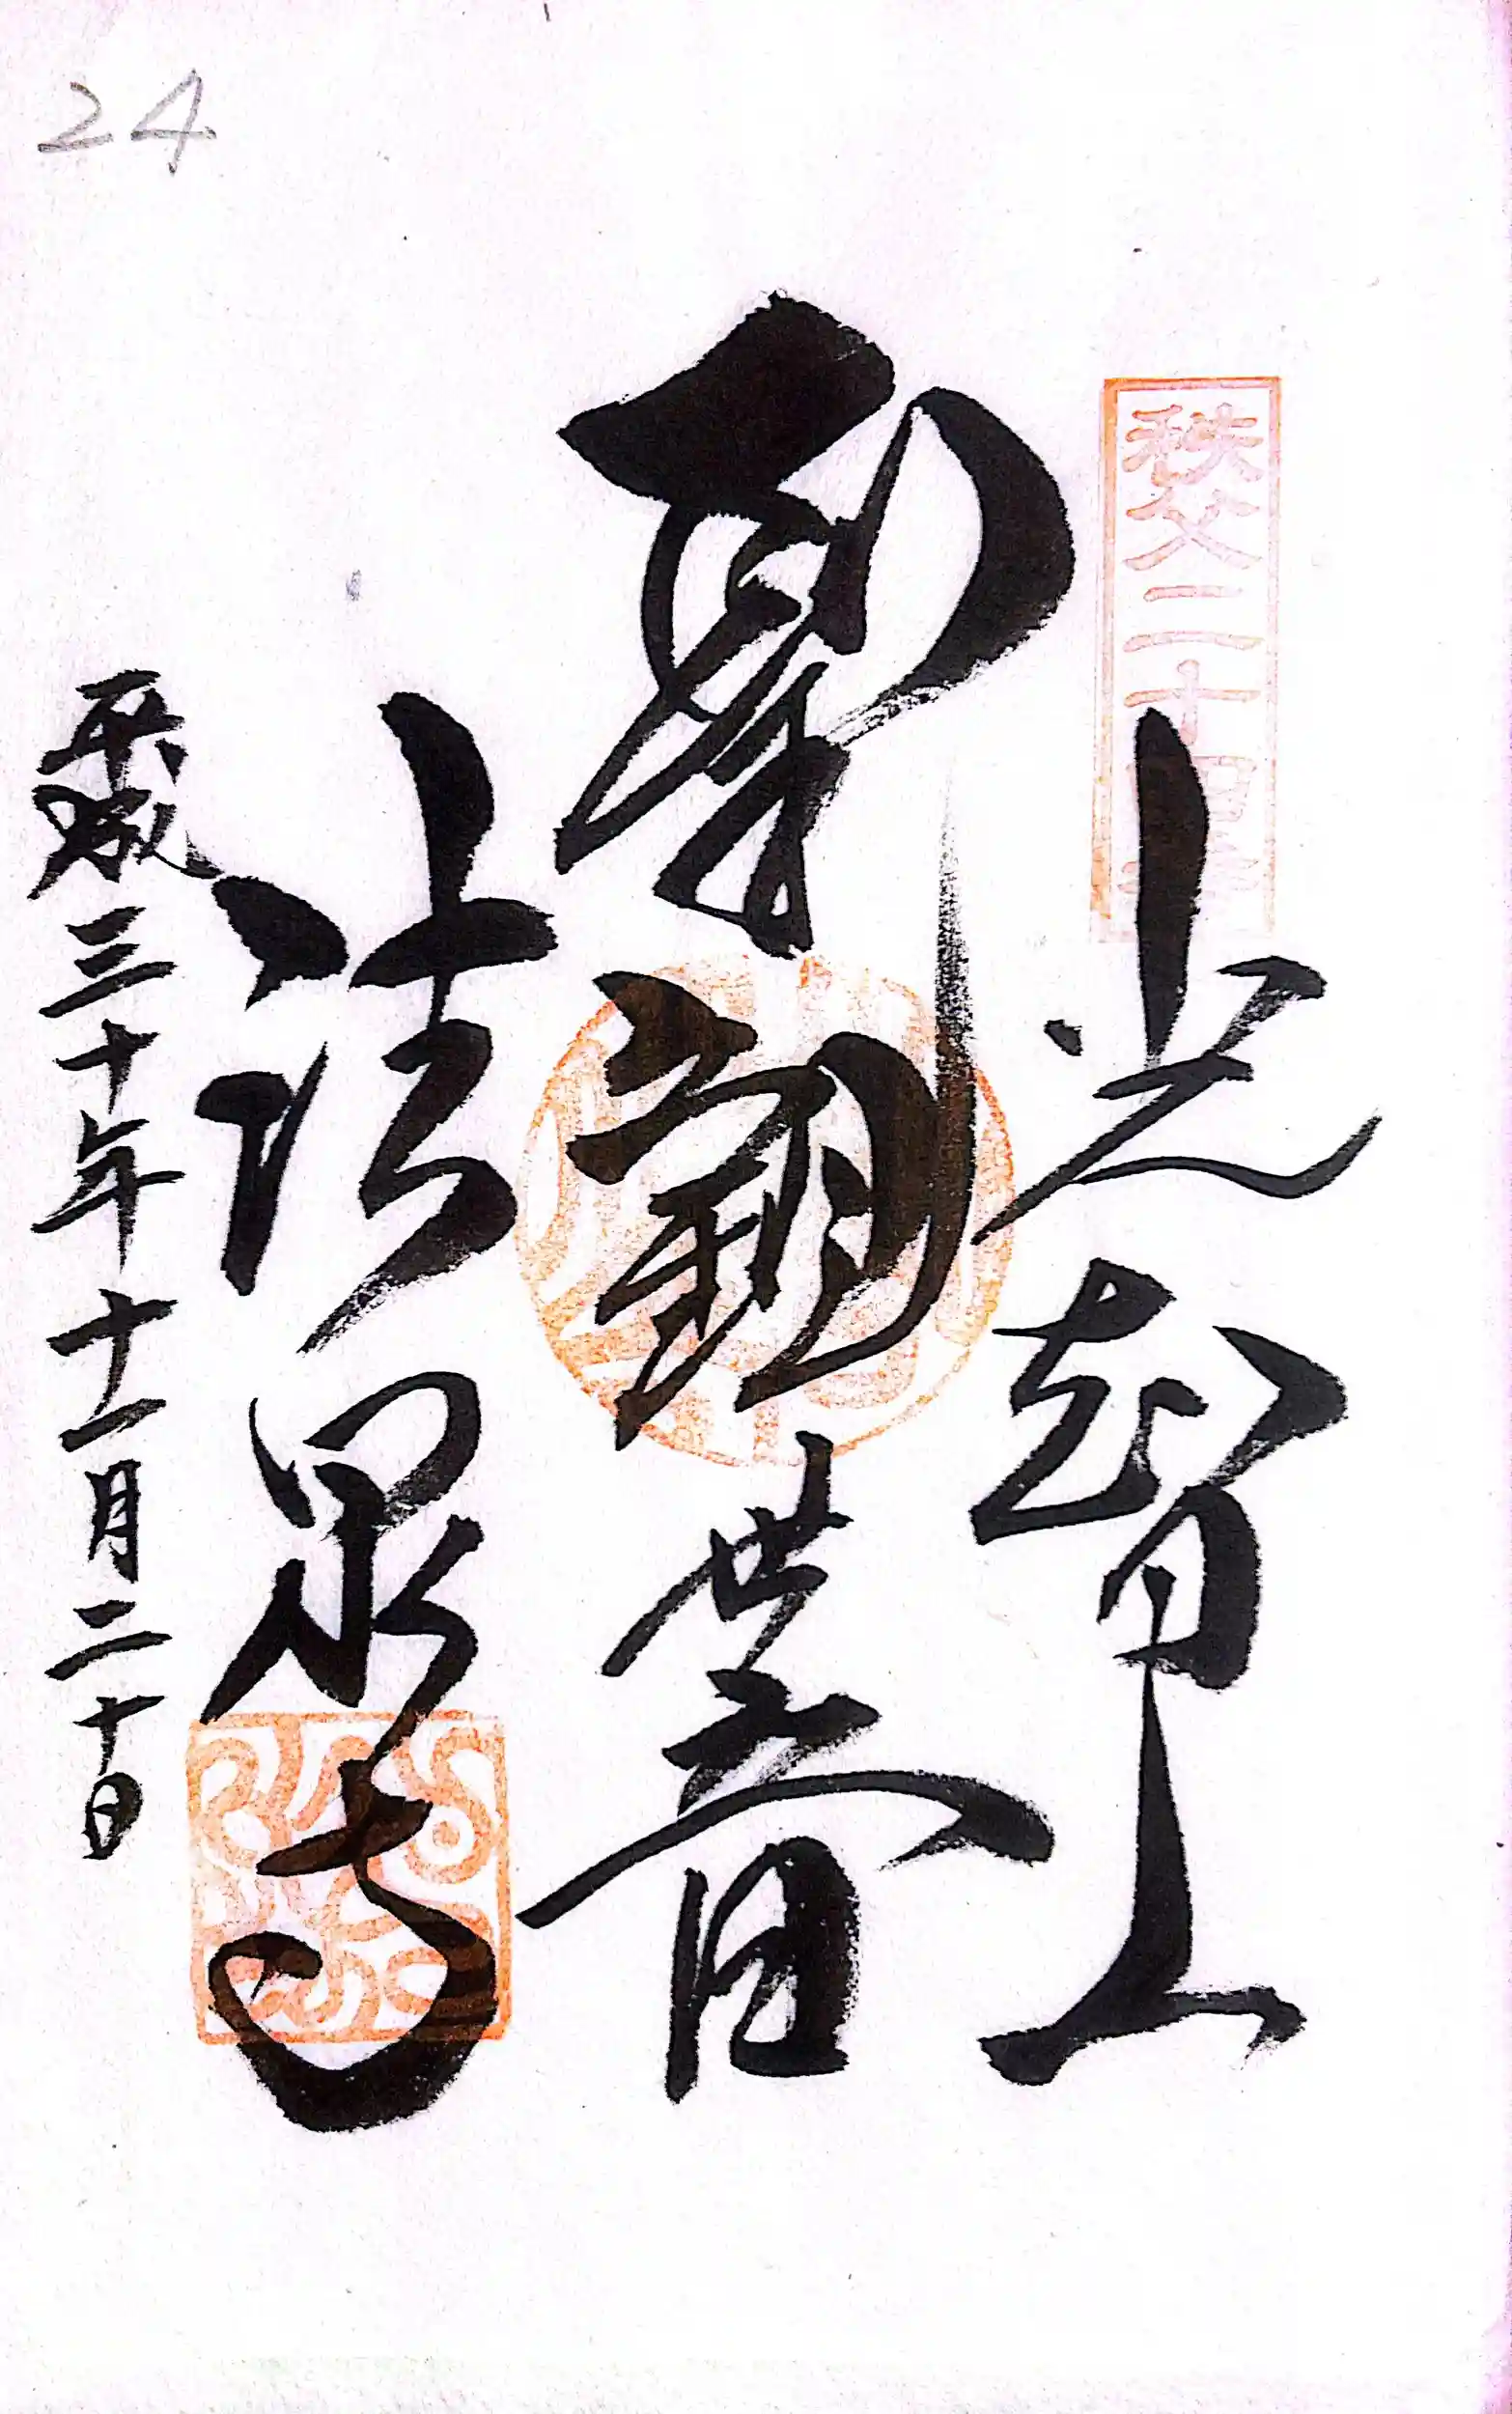 24
秩父二十四番
光智山
聖観世音
法泉寺
平成三十年十一月二十日